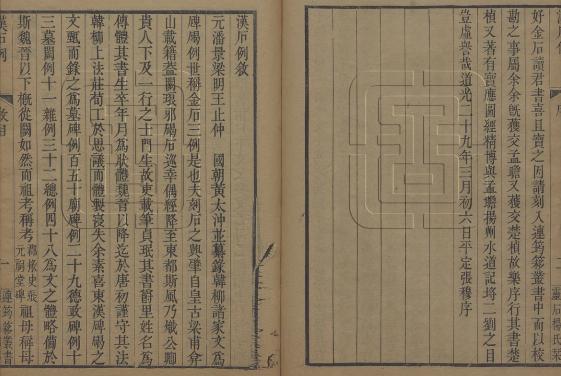 好金石讀君書喜且寶之因請刻入連筠簃叢書中而以校
勘之事屬余余旣獲交孟瞻又獲交楚楨故樂序行其書楚
楨又著有寶應圖經精博與孟瞻揚州水道記埒二劉之目
豈虛譽哉道光二十九年三月初六日平定張穆序
漢石例敘
元潘景梁明王止仲 國朝黃太沖並纂錄韓柳諸家文爲
碑碣例世稱金石三例是也夫刻石之興肇自皇古梁甫弇
山載籍盔闕琅邪碣石巡幸偶經降至東都斯風乃熾公卿
貴人下及一行之士門生故吏載筆貞珉其書爵里姓名爲
傳體其書生卒年月爲狀體魏晉以降迄於唐初謹守其法
韓柳上法莊荀工於思議而體製寖失余素喜東漢碑碣之
文輒而錄之爲墓碑例百五十廟碑例二十九德政碑例十
三墓闕例十一雜例三十二總例四十八爲文之體略備於
斯魏晉以下槪從闕如然而祖考稱考
祖母稱母
漢石例
敘目
一
連筠簃叢書